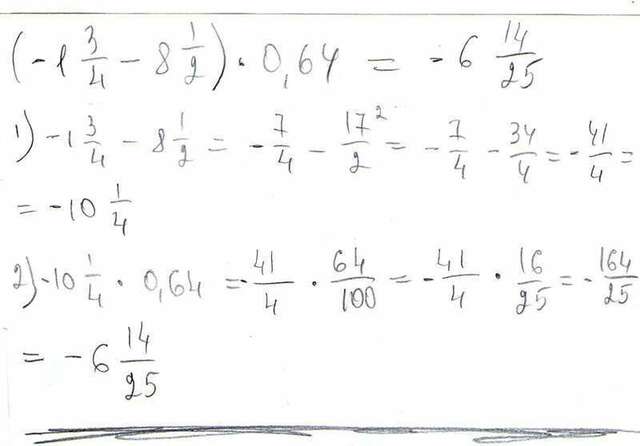 (-1 3/4 - 8 1/2) · 0,64 = -6 14/25
1) -1 3/4 - 8 1/2 = -7/4 - 17/2 ² = -7/4 - 34/4 = -41/4 =
= -10 1/4
2) -10 1/4 · 0,64 = -41/4 · 64/100 = -41/4 · 16/25 = -164/25
= -6 14/25